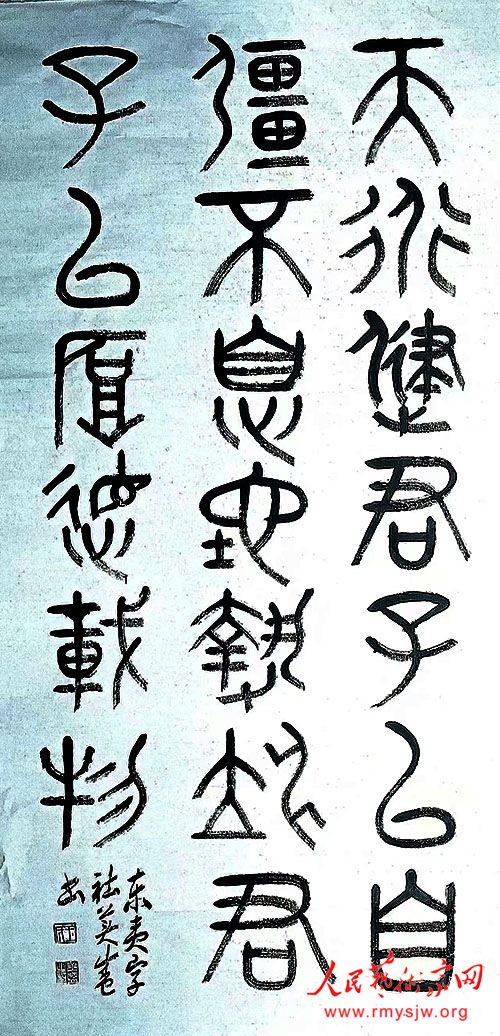 天行健君子以自
彊不息地埶坤君
子以厚德載物
东夷字
书
人民艺术家网
www.rmysjw.org